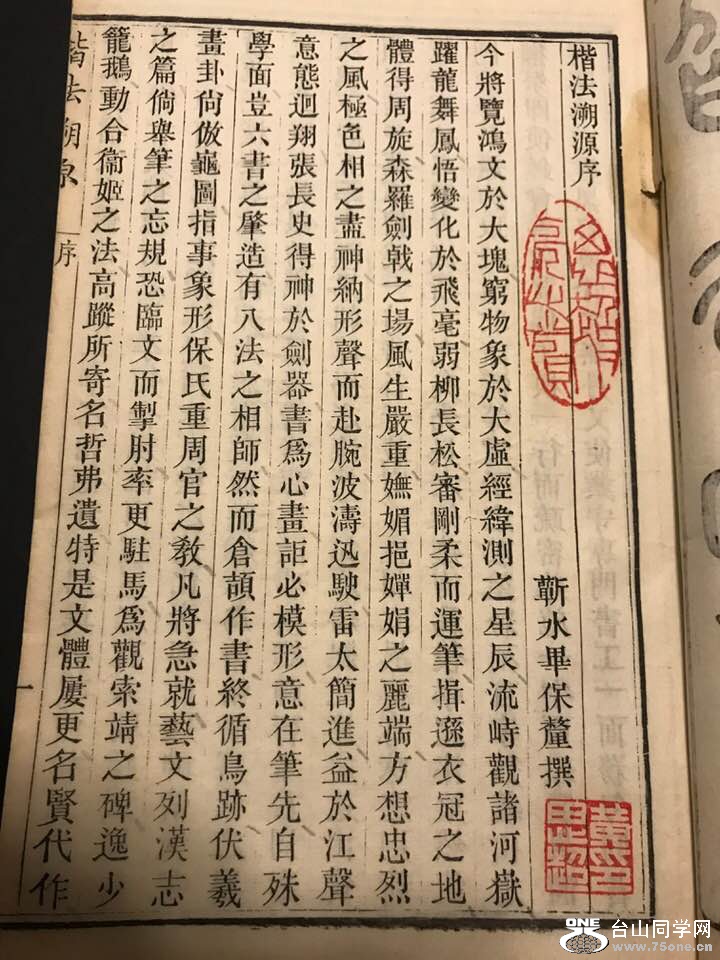 楷法溯源序
蘄水畢保釐撰
今將覽鴻文於大塊窮物象於大虛經緯測之星辰流峙觀諸河嶽
躍龍舞鳳悟變化於飛毫弱柳長松審剛柔而運筆揖遜衣冠之地
體得周旋森羅劍戟之場風生嚴重嫵媚挹嬋娟之麗端方想忠烈
之風極色相之盡神納形聲而赴腕波濤迅駛雷太簡進益於江聲
意態迴翔張長史得神於劍器書爲心畫詎必模形意在筆先自殊
學面豈六書之肇造有八法之相師然而倉頡作書終循鳥跡伏羲
畫卦尙倣龜圖指事象形保氏重周官之敎凡將急就藝文列漢志
之篇倘舉筆之忘規恐臨文而掣肘率更駐馬爲觀索靖之碑逸少
籠鵝動合衞姬之法高蹤所寄名哲弗遺特是文體屢更名賢代作
楷法溯原
序
一
ONE 台山同学网
www.75one.cn